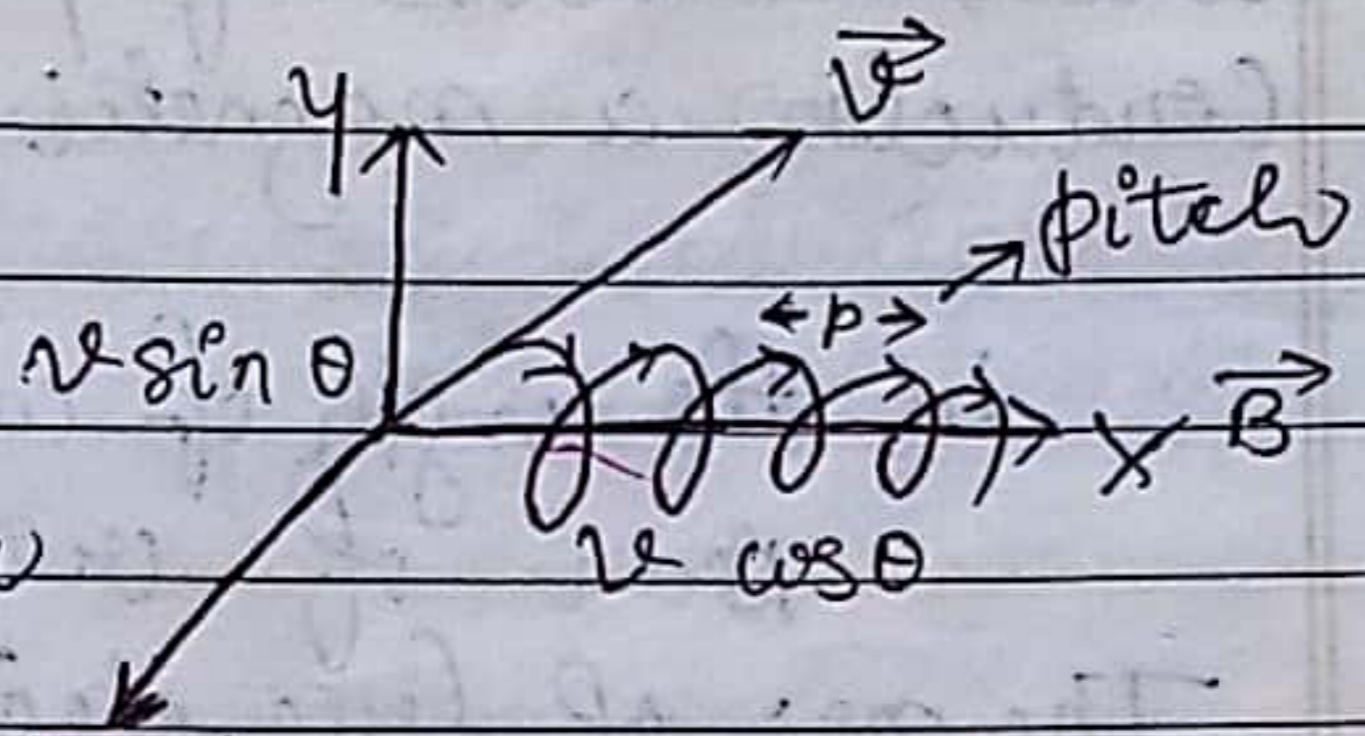 y
v
pitch
v sin θ
←p→
X B
v cos θ